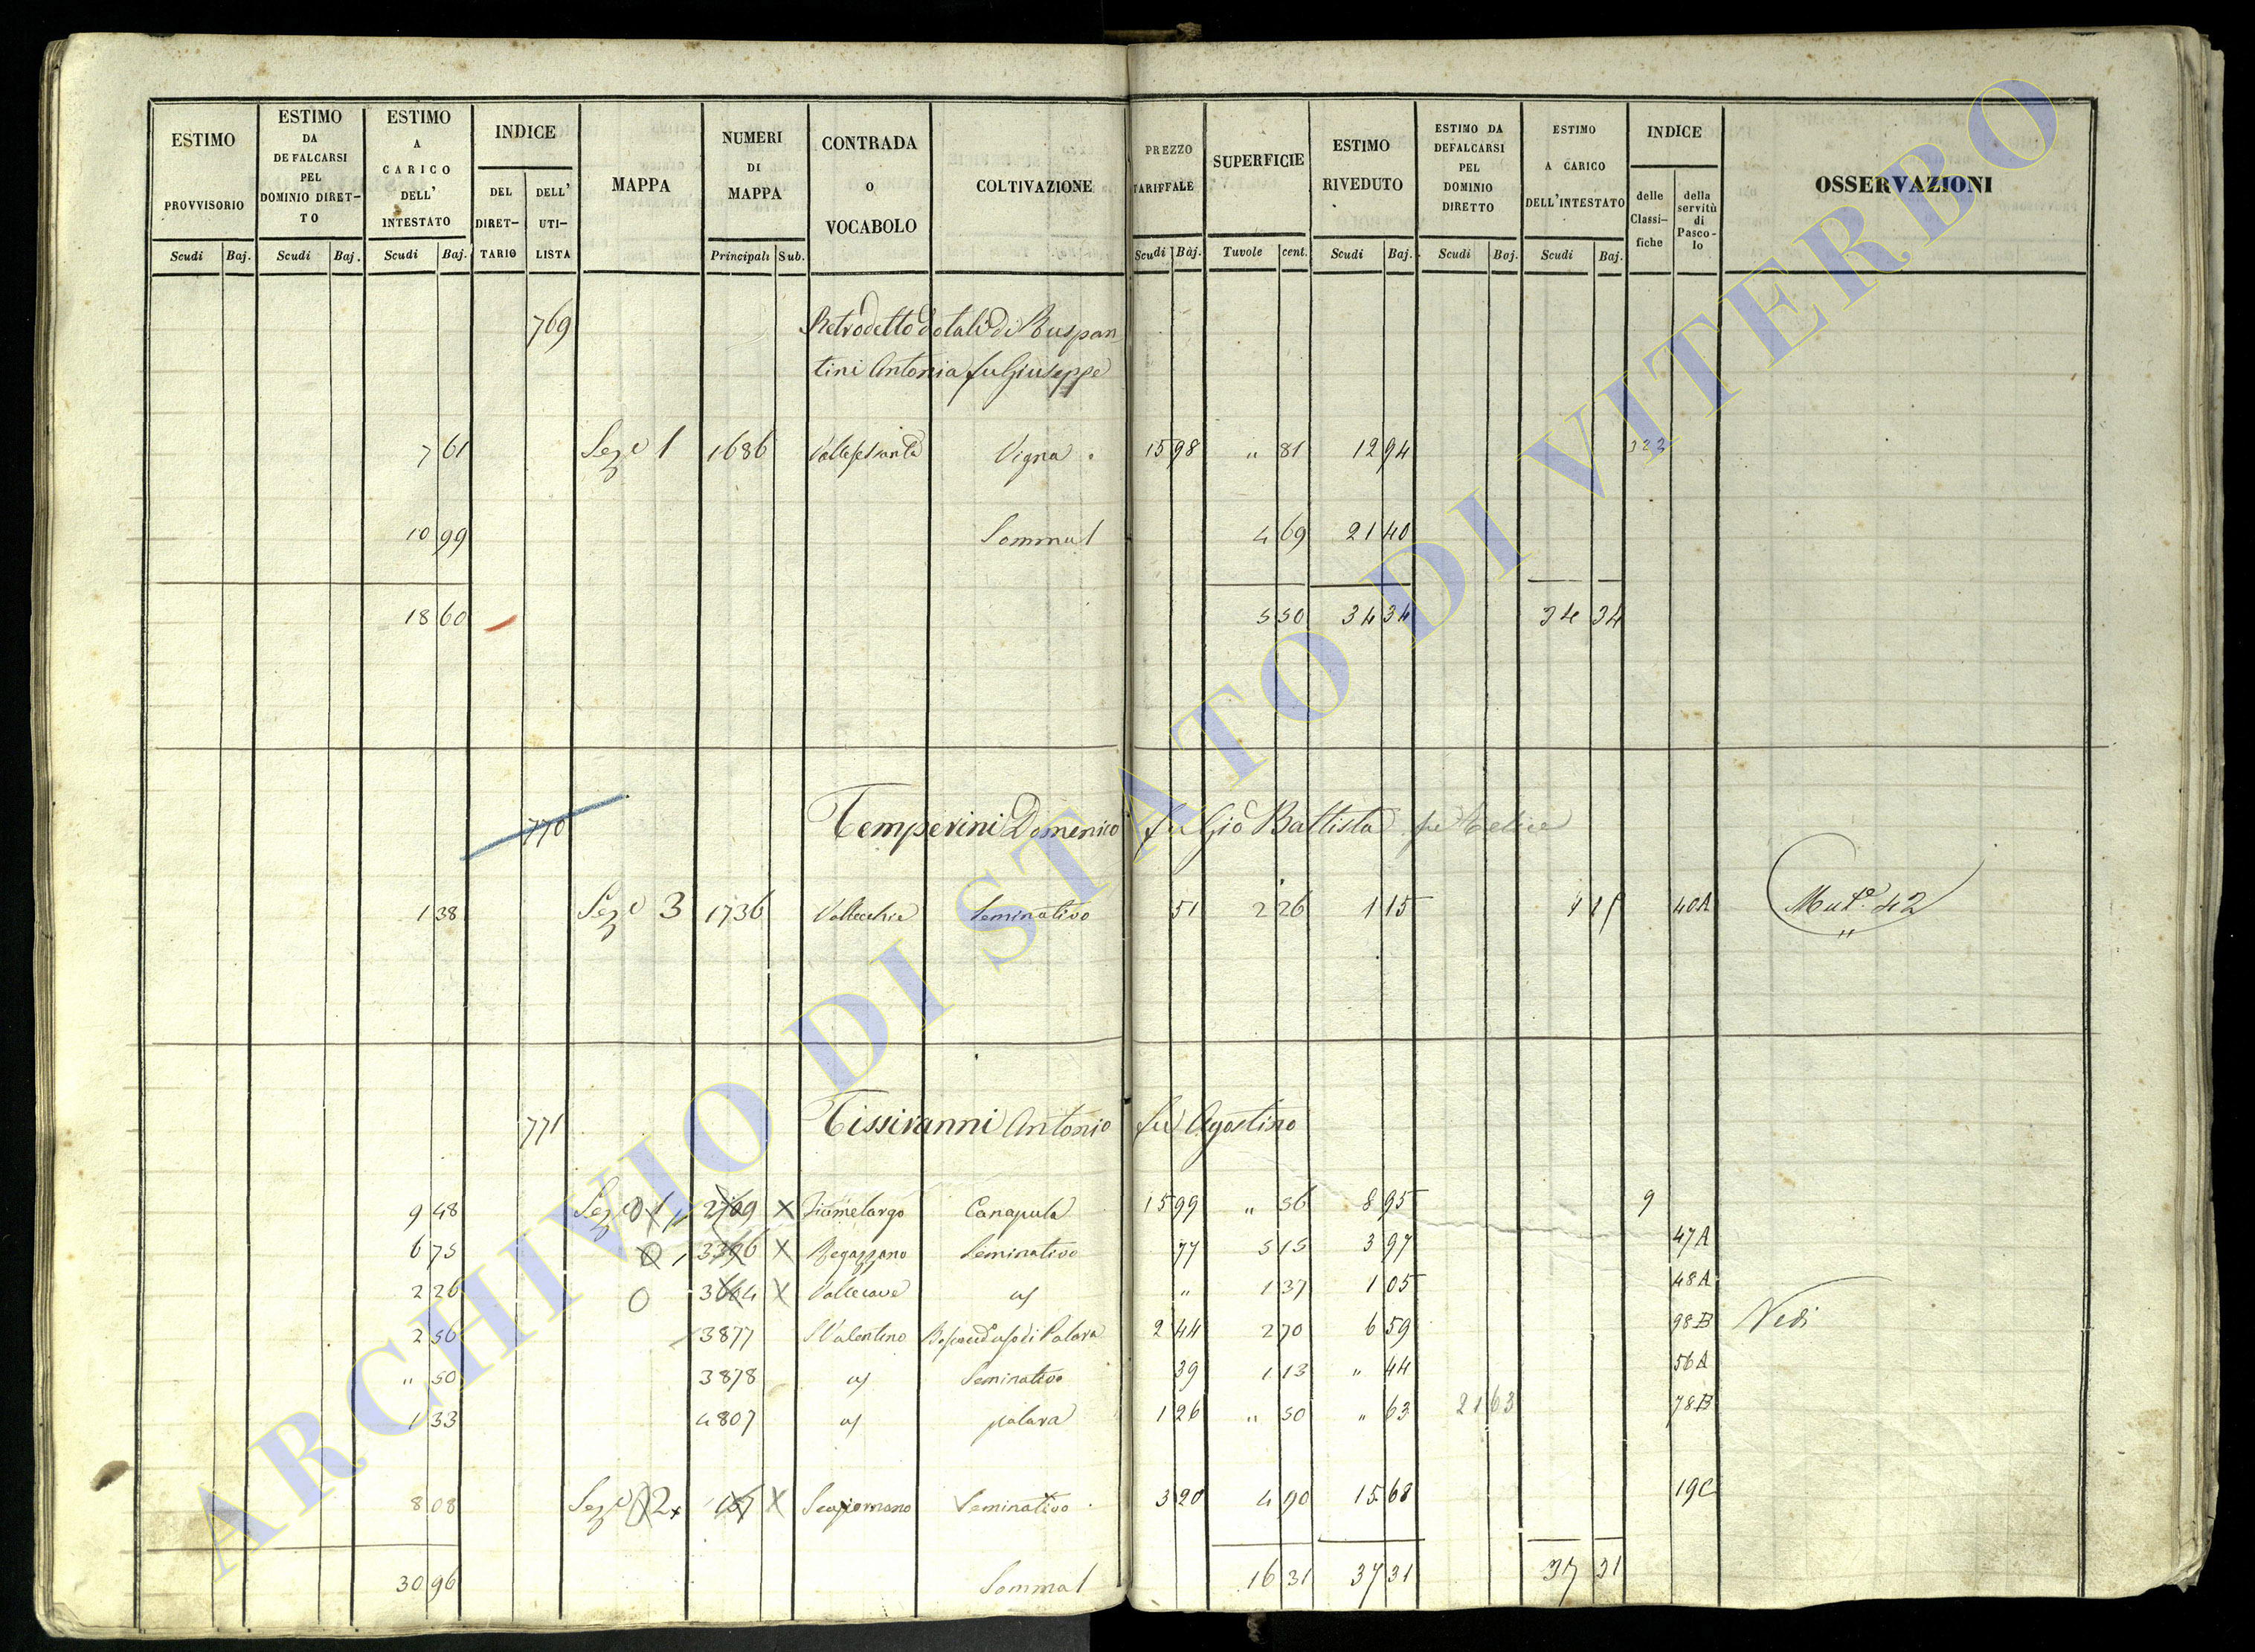 ESTIMO PROVVISORIO | ESTIMO DA DEFALCARSI PEL DOMINIO DIRET-TO | ESTIMO A CARICO DELL' INTESTATO | INDICE | MAPPA | NUMERI DI MAPPA | CONTRADA O VOCABOLO | COLTIVAZIONE | PREZZO TARIFFALE | SUPERFICIE | ESTIMO RIVEDUTO | ESTIMO DA DEFALCARSI PEL DOMINIO DIRETTO | ESTIMO A CARICO DELL'INTESTATO | INDICE | OSSERVAZIONI
DEL DIRET-TARIO | DELL' UTI-LISTA | delle Classi-fiche | della servitù di Pasco-lo
Scudi | Baj. | Scudi | Baj. | Scudi | Baj. | Principali | Sub. | Scudi | Baj. | Tavole | cent. | Scudi | Baj. | Scudi | Baj. | Scudi | Baj.
769 Retrodetto dotali di Ruspan-
tini Antonia fu Giuseppe
7 61 Sez.e 1 1686 Vigna 15 98 " 81 12 94 322
10 99 Somma 4 69 21 40
18 60 5 50 34 34 34 34
770 Temperini Domenico fu Gio Battista
1 38 Sez.e 3 1736 Vallecchie Seminativo 51 2 26 1 15 1 15 40A Mut.e 42
771 Tissiranni Antonio fu Agostino
9 48 Sez.e 1 2109 Fiumelargo Canapula 15 99 " 56 8 95 9
6 75 3396 Regazzano Seminativo 77 5 15 3 97 47A
2 26 3664 Vallecave " 1 37 1 05 48A
2 56 3877 S Valentino 2 44 2 70 6 59 98B Vedi
" 50 3878 Seminativo 39 1 13 " 44 56A
1 33 4807 palara 1 26 " 50 " 63 21 63 78B
8 08 Sez.e 2 Seminativo 3 20 4 90 15 68 19C
30 96 Somma 16 31 37 31 37 31
ARCHIVIO DI STATO DI VITERBO